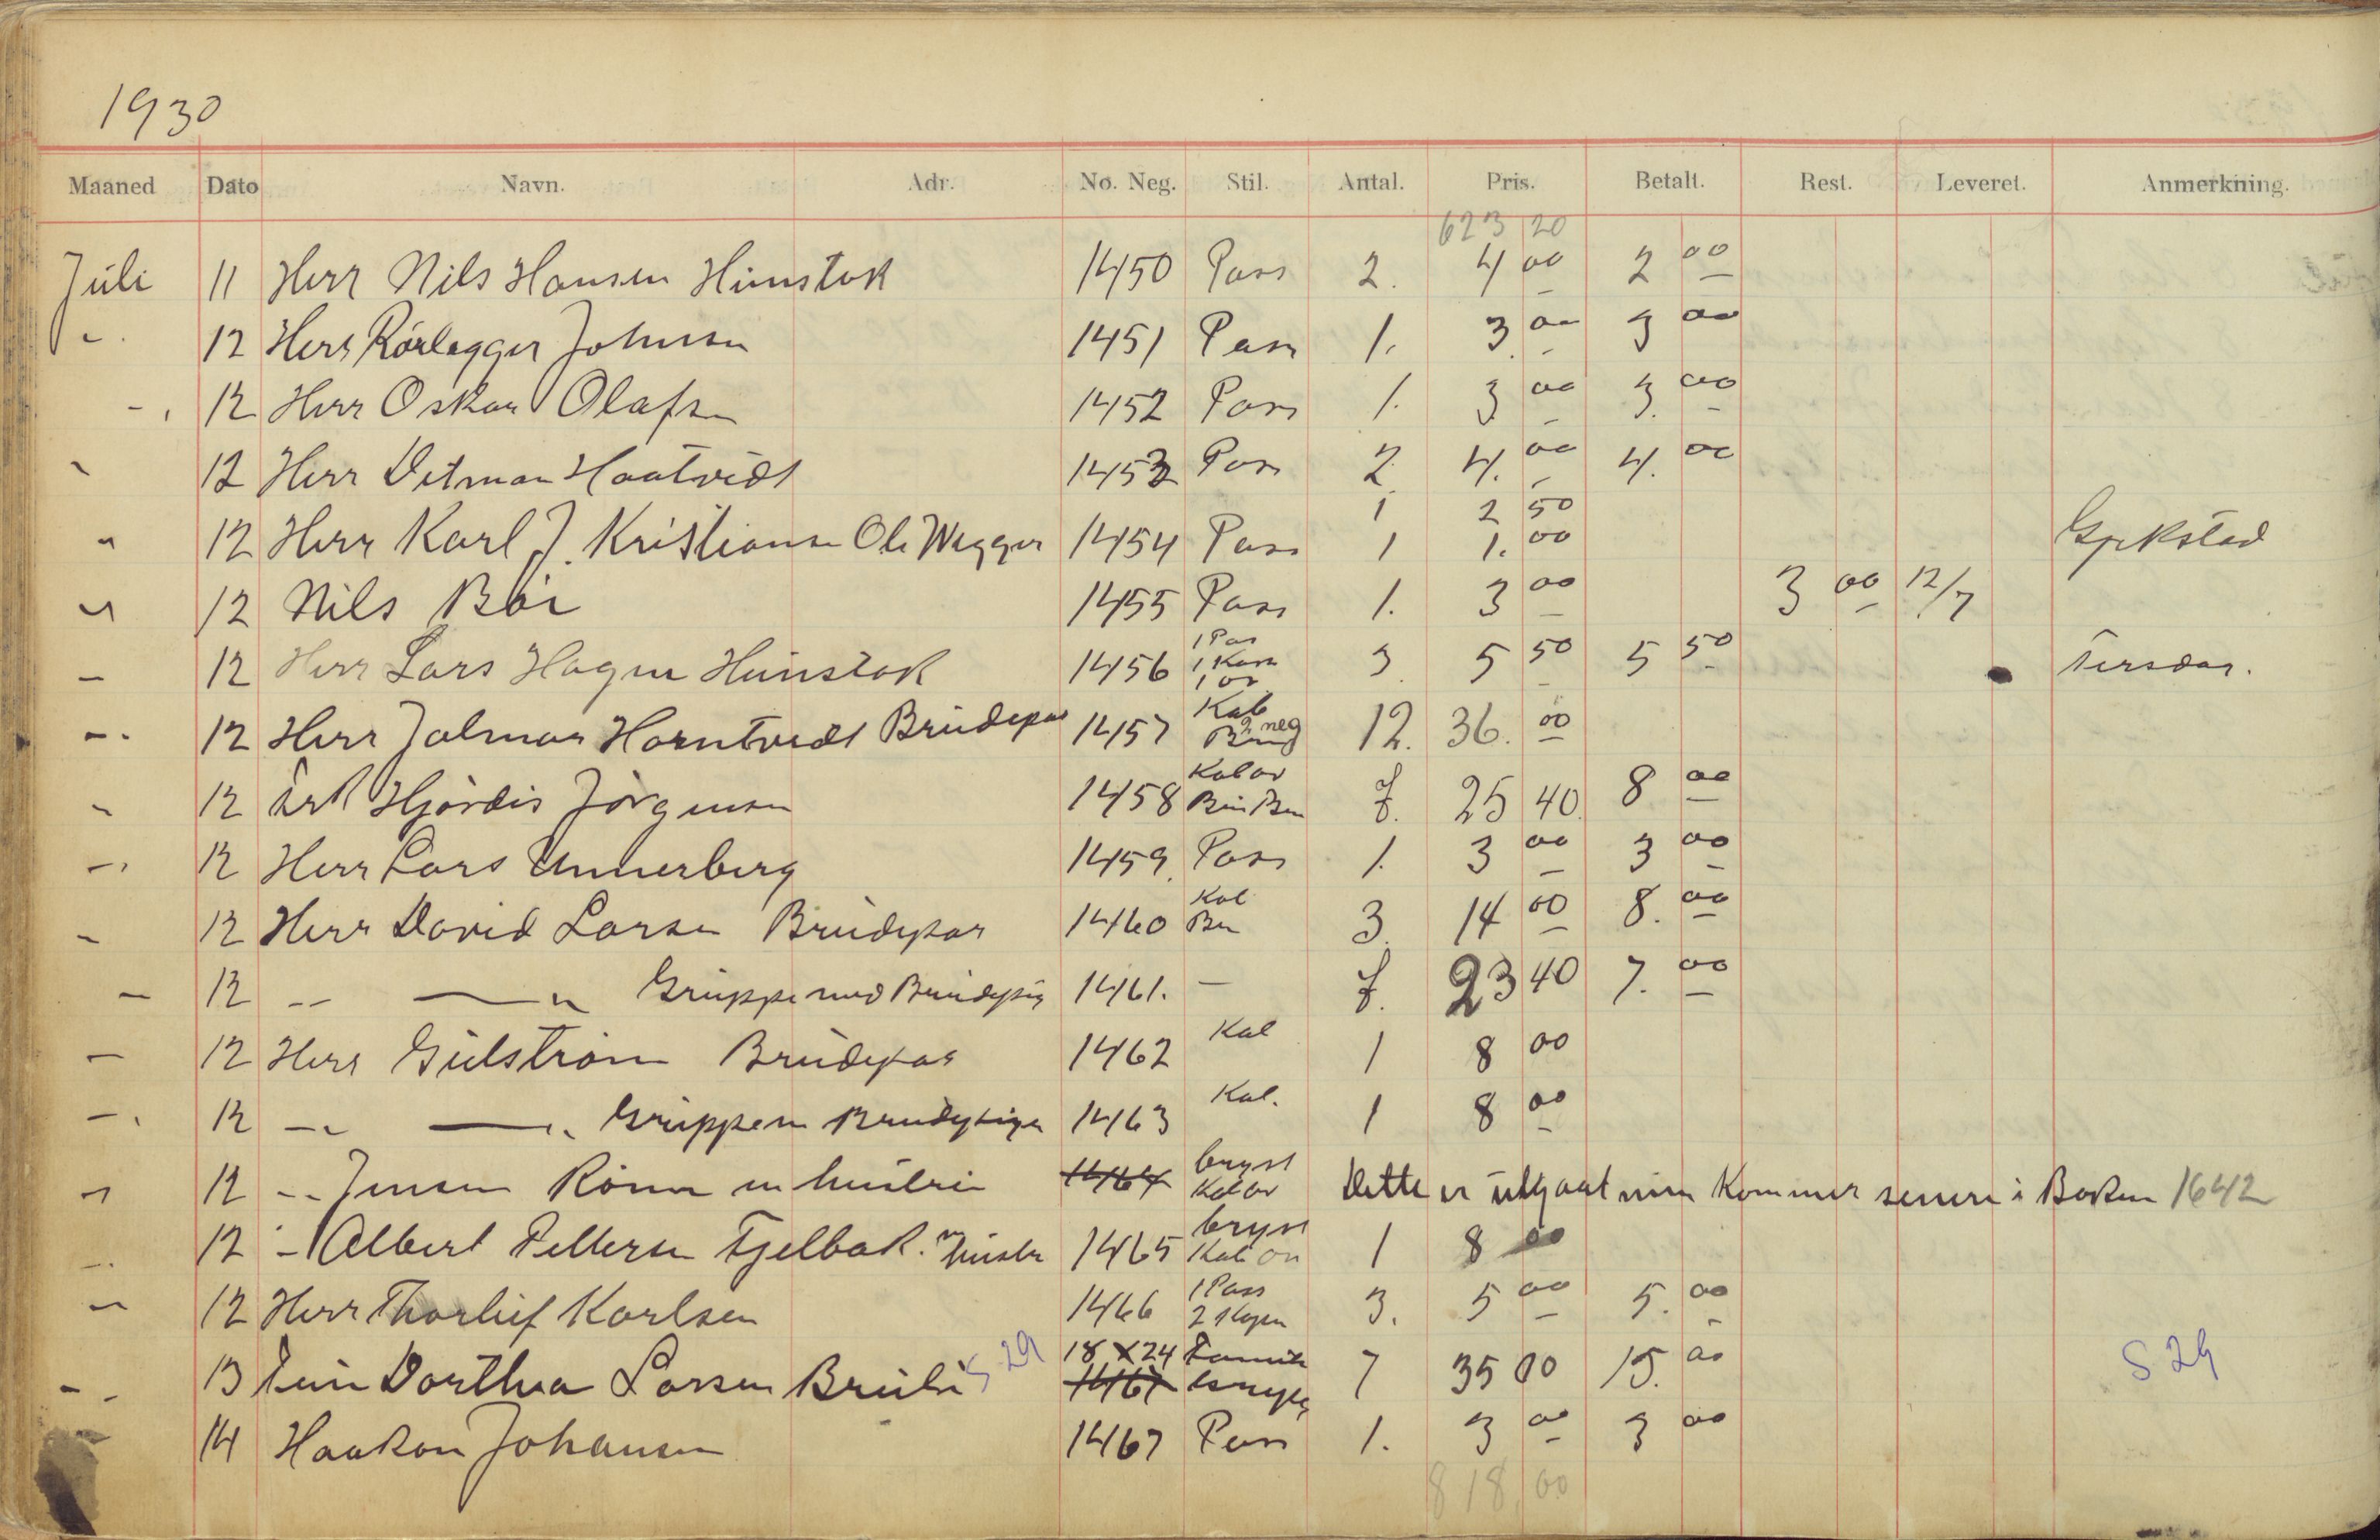 1930
Maaned Dato Navn. Adr. No. Neg. Stil. Antal. Pris. Betalt. Rest. Leveret. Anmerkning.
623 20
Juli 11 Herr Nils Hansen Himstok 1450 Pass 2. 4 00 2 00
" 12 Herr Rørlegger Johnsen 1451 Pass 1. 3 00 3 00
" 12 Herr Oskar Olafsen 1452 Pass 1. 3 00 3. 00
" 12 Herr Ditman Haatvedt 1453 Pass 2 4. 00 4. 00
1 2 50
" 12 Herr Karl J. Kristiansen Ole Wegger 1454 Pass 1 1. 00 Gjekstad
" 12 Nils Bøi 1455 Pass 1. 3 00 3 00 12/7
— 12 Herr Lars Hagen Himstok 1456 1 Pas 1 Kort 1 or 3 5 50 5 50 Tirsdag.
—. 12 Herr Jalmar Horntvedt Brudepar 1457 Kab 2 neg 12. 36. 00
" 12 Frk Hjørdis Jørgensen 1458 Kab or 7. 25 40 8 00
—. 12 Herr Lars Unnerberg 1459. Pass 1. 3 00 3 00
" 12 Herr David Larsen Brudepar 1460 Kab Bru 3 14 00 8. 00
— 12 — — " Gruppe med Brudepig 1461. — 7. 23 40 7. 00
— 12 Herr Gulstrøm Brudepar 1462 Kab 1 8 00
—. 12 — — " Gruppe m Brudepiger 1463 Kab. 1 8 00
" 12 -- Jensen Rønn m hustru 1464 bryst Kab or Dette er utgaat men kommer senere i Boken 1642
—. 12 — Albert Pettersen Fjelbak. m hustr 1465 bryst Kab or 1 8 00
" 12 Herr Thorleif Karlsen 1466 1 Pass 2 Kopen 3. 5 00 5. 00
— - 13 Fru Dorthea Larsen Bruli S 29 18 x 24 1467 Famile 7 35 00 15. 00 S 29
14 Haakon Johansen 1467 Pass 1. 3 00 3 00
818,00